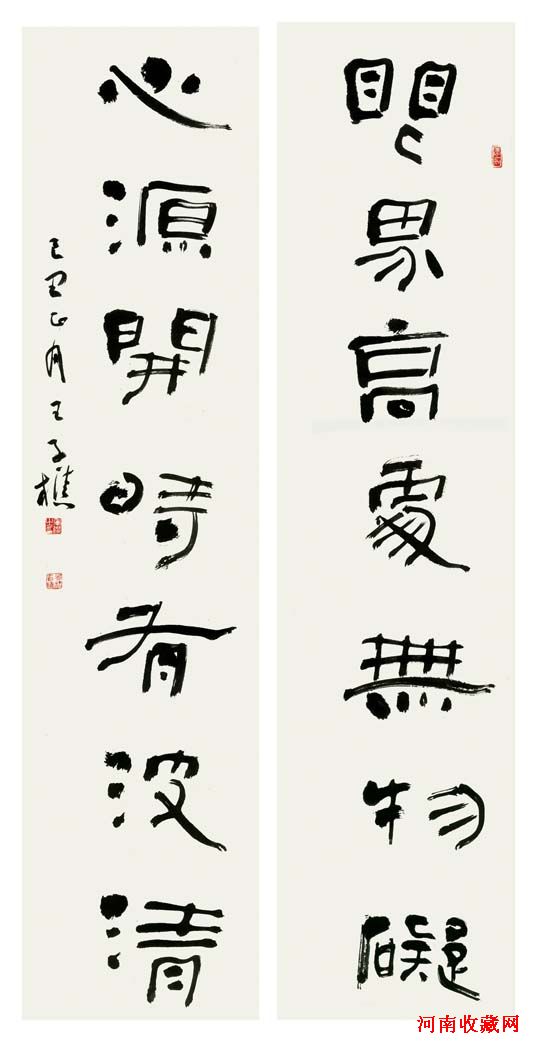 眼界高處無物礙
心源開時有波清
己丑正月王子樵
河南收藏网